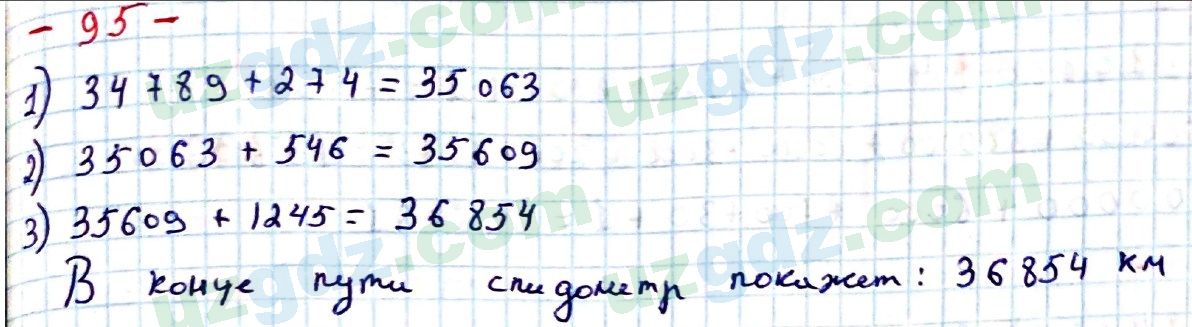 - 95 -
1) 34789 + 274 = 35063
2) 35063 + 546 = 35609
3) 35609 + 1245 = 36854
В конце пути спидометр покажет: 36854 км
uzgdz.com
uzgdz.com
uzgdz.com
uzgdz.com
uzgdz.com
uzgdz.com